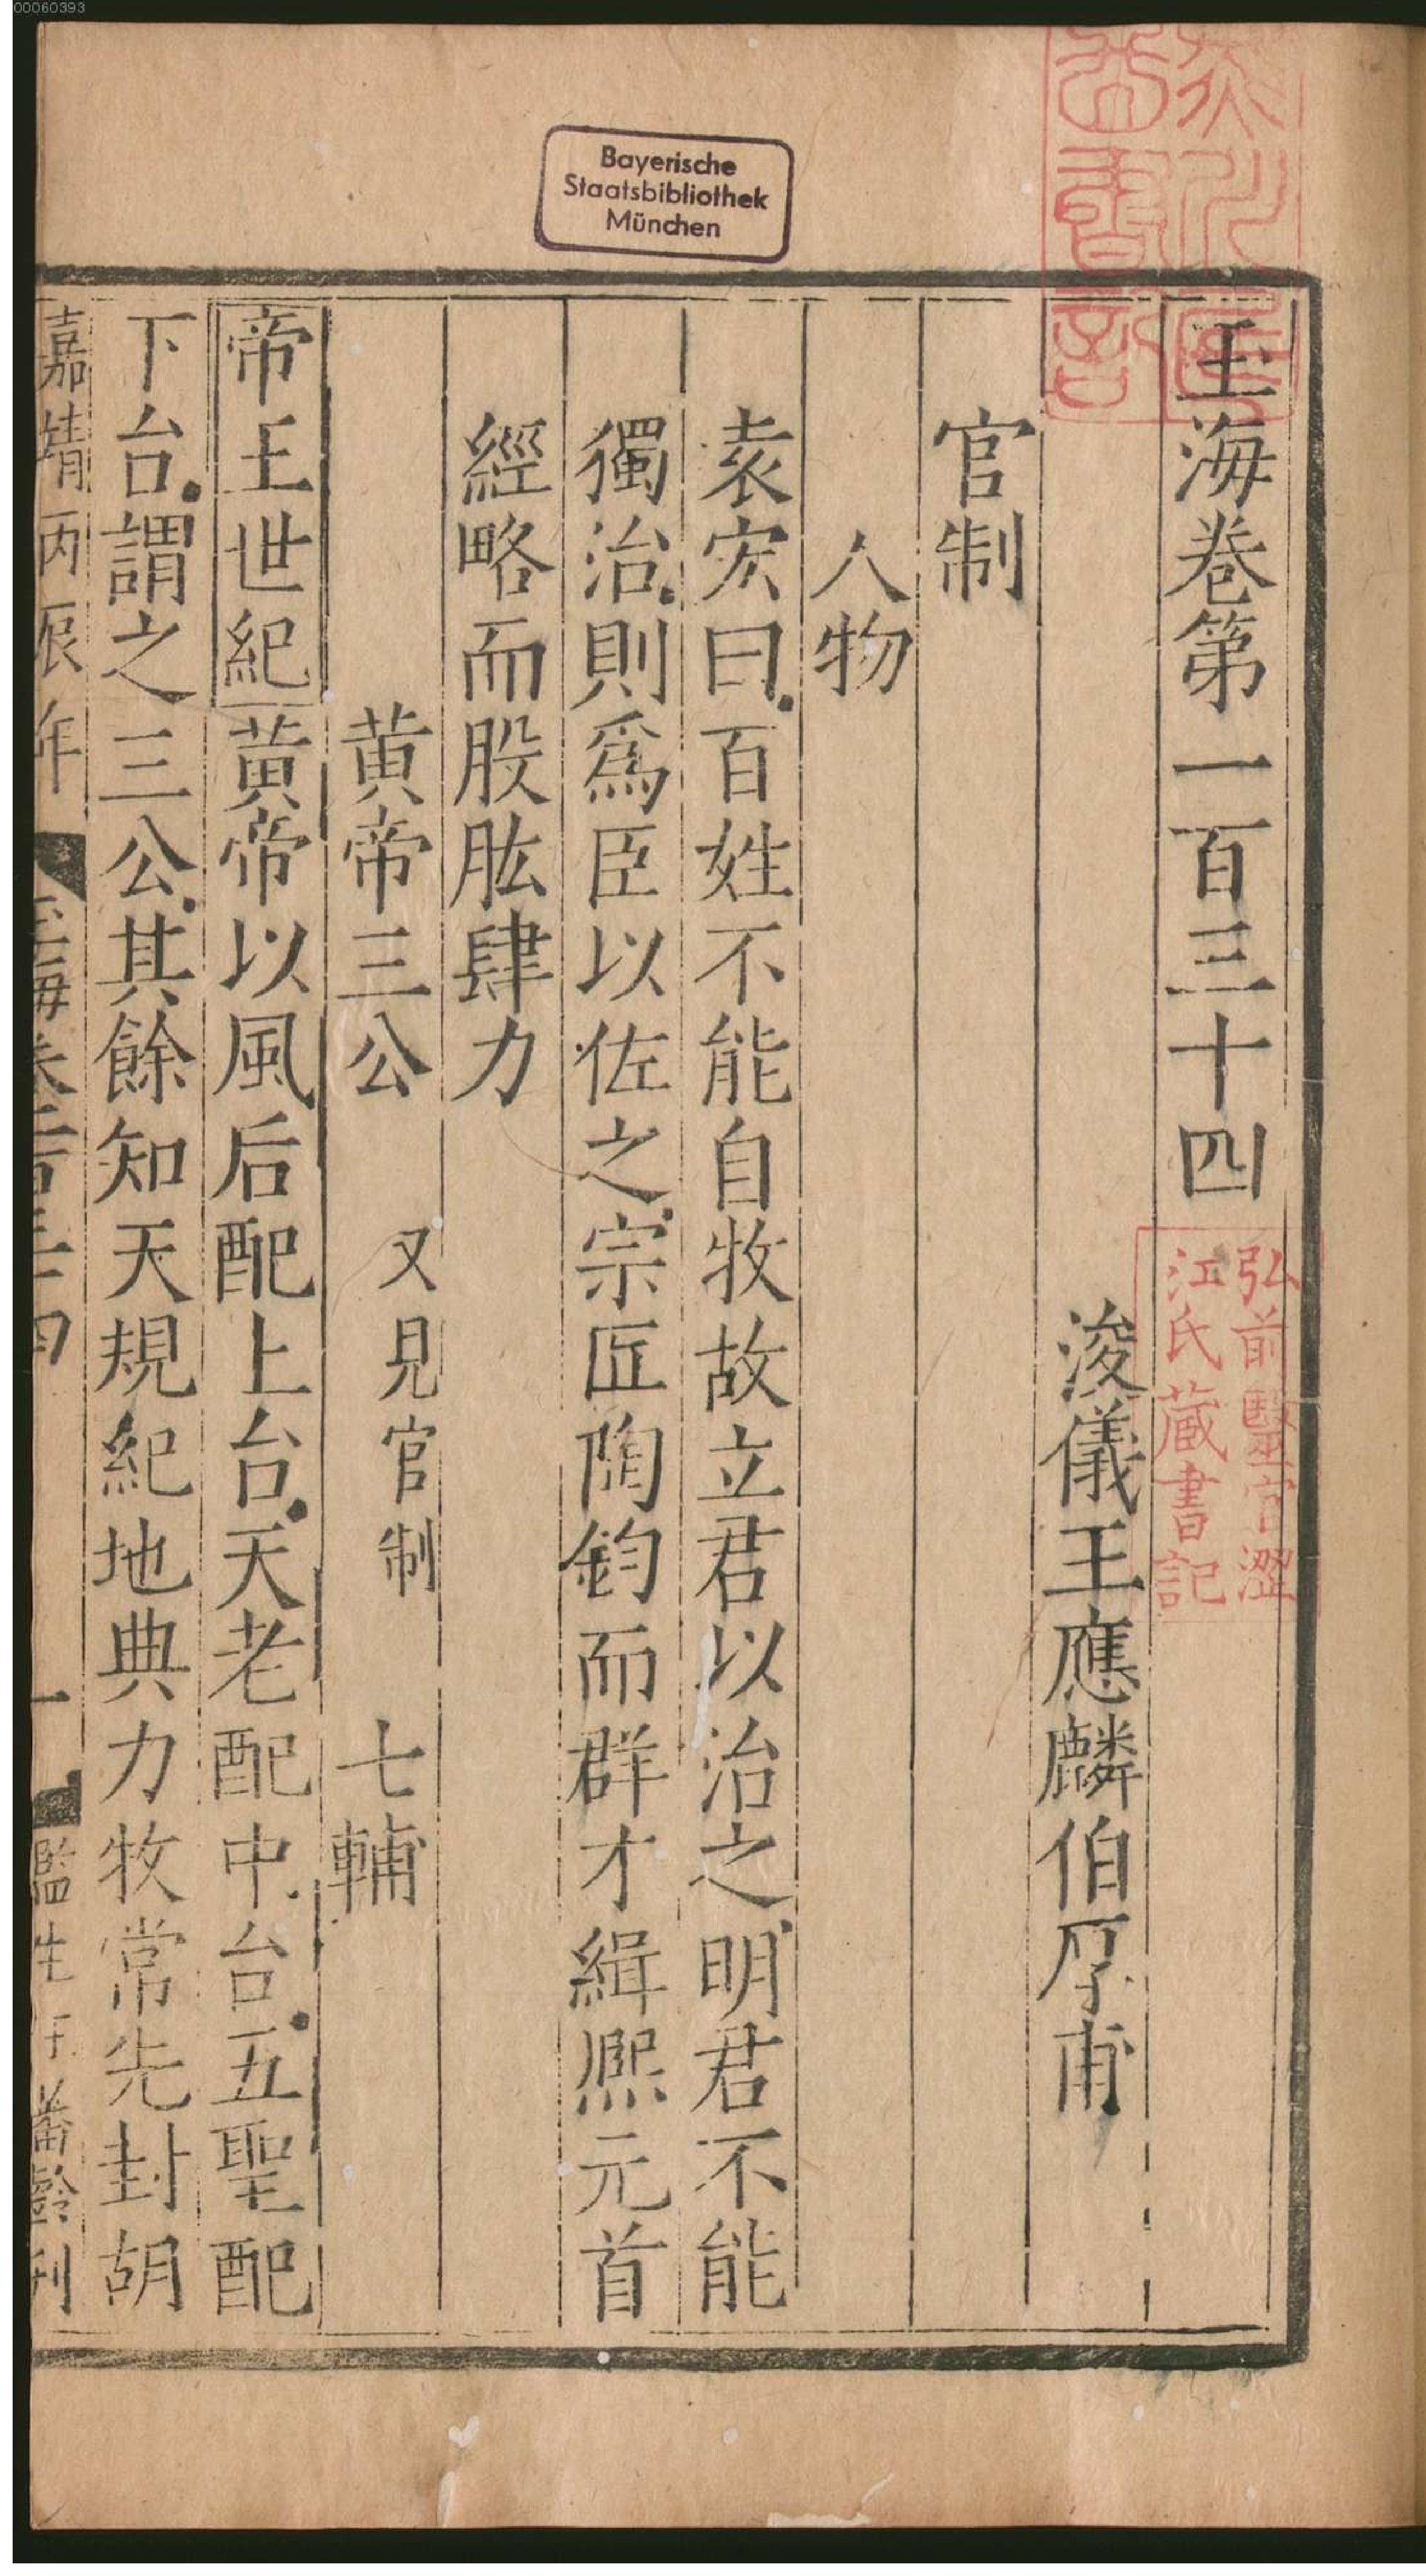 00060393
Bayerische
Staatsbibliothek
München
玉海卷第一百三十四
弘前醫官澀
江氏藏書記
浚儀王應麟伯厚甫
官制
人物
袁宏曰百姓不能自牧故立君以治之明君不能
獨治則爲臣以佐之宗匠陶鈞而群才緝熈元首
經略而股肱肆力
黄帝三公 又見官制 七輔
帝王世紀黄帝以風后配上台天老配中台五聖配
下台謂之三公其餘知天規紀地典力牧常先封胡
嘉靖丙辰年 玉海卷一百三十四 一 監生 齡刊